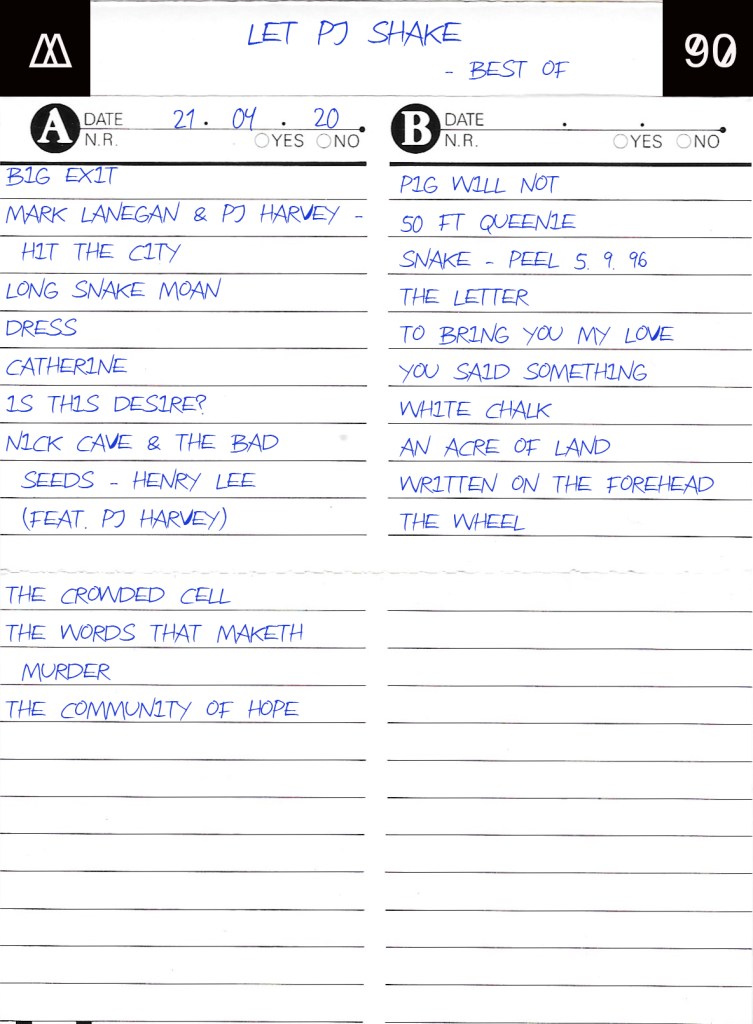 LET PJ SHAKE
- BEST OF
90
A DATE 21 . 04 . 20
N.R. YES NO
BIG EXIT
MARK LANEGAN & PJ HARVEY -
HIT THE CITY
LONG SNAKE MOAN
DRESS
CATHERINE
IS THIS DESIRE?
NICK CAVE & THE BAD
SEEDS - HENRY LEE
(FEAT. PJ HARVEY)
THE CROWDED CELL
THE WORDS THAT MAKETH
MURDER
THE COMMUNITY OF HOPE
B DATE . .
N.R. YES NO
PIG WILL NOT
50 FT QUEENIE
SNAKE - PEEL 5. 9. 96
THE LETTER
TO BRING YOU MY LOVE
YOU SAID SOMETHING
WHITE CHALK
AN ACRE OF LAND
WRITTEN ON THE FOREHEAD
THE WHEEL